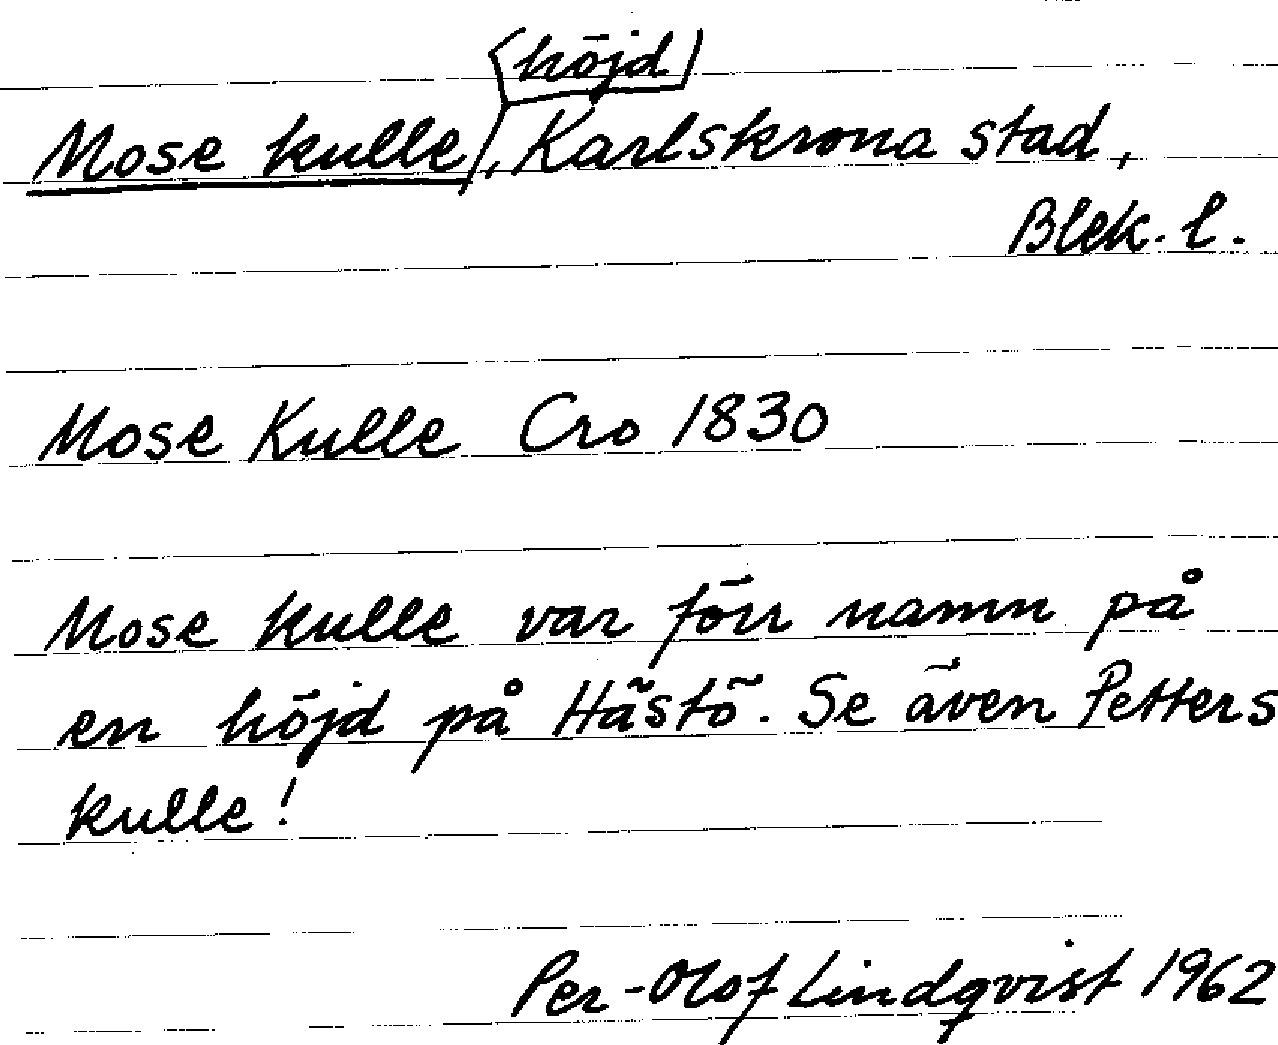 (höjd)
Mose kulle, Karlskrona stad,
Blek. l.
Mose Kulle Cro 1830
Mose Kulle var förr namn på
en höjd på Hästö. Se även Petters
kulle!
Per-Olof Lindqvist 1962